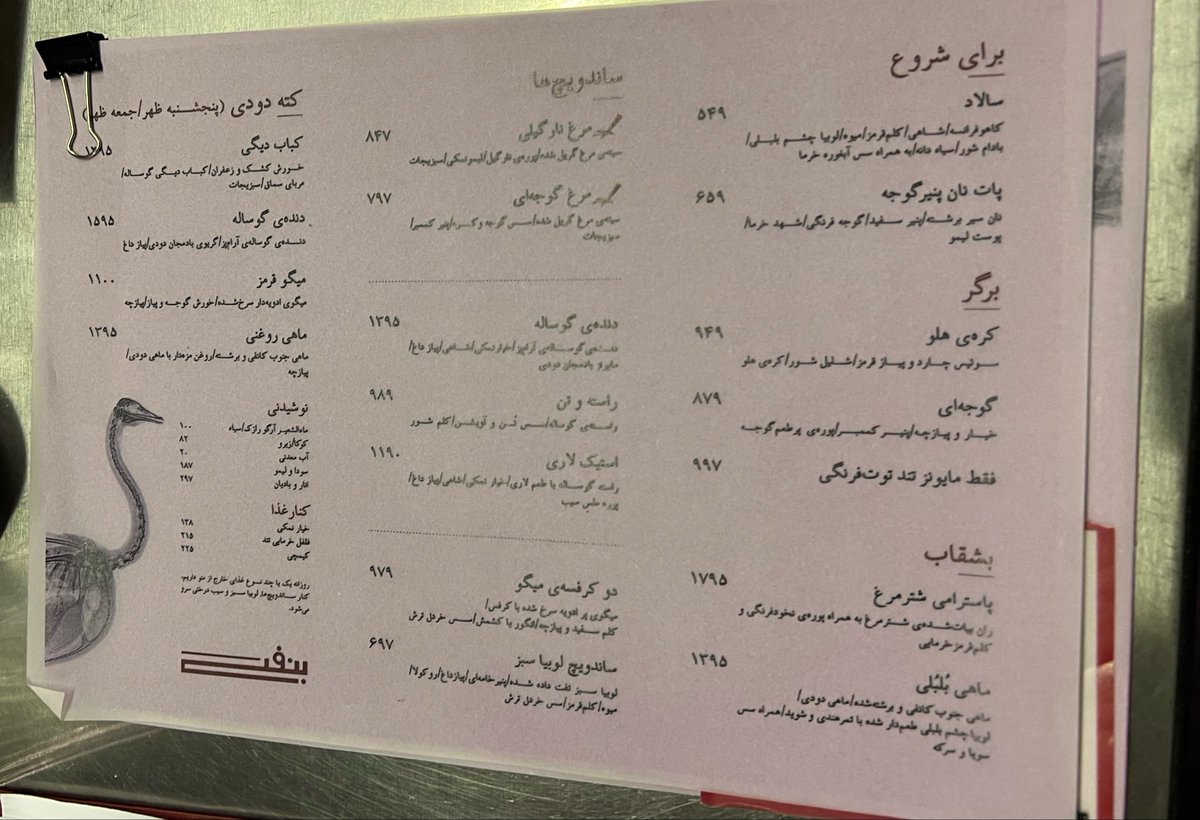 برای شروع
سالاد
۵۴۹
کاهوفرانسه/شاهی/کلم‌قرمز/میوه/لوبیا چشم بلبلی/
بادام شور/سیاه دانه/به همراه سس آبغوره خرما
پات نان پنیرگوجه
۶۵۹
نان سیر برشته/پنیر سفید/گوجه فرنگی/شهد خرما/
پوست لیمو
برگر
کره‌ی هلو
۹۴۹
سوئیس چارد و پیاز قرمز/شلیل شور/کره‌ی هلو
گوجه‌ای
۸۷۹
خیار و پیازچه/پنیر کممبر/پوره‌ی پرطعم‌گوجه
فقط مایونز تند توت‌فرنگی
۹۹۷
بشقاب
پاسترامی شترمرغ
۱۷۹۵
ران بیات‌شده‌ی شترمرغ به همراه پوره‌ی نخودفرنگی و
کلم‌قرمزخرمایی
ماهی بُلبُلی
۱۳۹۵
ماهی جنوب کانفی و برشته‌شده/ماهی دودی/
لوبیاچشم بلبلی طعم‌دار شده با تمرهندی و شوید/همراه سس
سویا و سرکه
ساندویچ‌ها
مرغ نارگیلی
۸۴۷
سینه‌ی مرغ گریل شده/پوره‌ی نارگیل/لیمونمکی/سبزیجات
مرغ گوجه‌ای
۷۹۷
سینه‌ی مرغ گریل شده/سس گوجه وکره/پنیر کممبر/
سبزیجات
دنده‌ی گوساله
۱۳۹۵
دنده‌ی گوساله‌ی آرام‌پز/خیارنمکی/شاهی/پیاز داغ/
مایونز بادمجان دودی
راسته و تن
۹۸۹
راسته‌ی گوساله/سس تُن و آویشن/کلم شور
استیک لاری
۱۱۹۰
راسته گوساله با طعم لاری/خیار نمکی/شاهی/پیاز داغ/
پوره ملس سیب
دو کرفسه‌ی میگو
۹۷۹
میگوی پر ادویه سرخ شده با کرفس/
کلم سفید و پیازچه/انگور یا کشمش/سس خردل ترش
ساندویچ لوبیا سبز
۶۹۷
لوبیا سبز تفت داده شده/پنیرخامه‌ای/پیازداغ/روکولا/
میوه/کلم‌قرمز/سس خردل ترش
کته دودی (پنجشنبه ظهر/جمعه ظهر)
کباب دیگی
خورش کشک و زعفران/کباب دیگی گوساله/
مربای سماق/سبزیجات
دنده‌ی گوساله
۱۵۹۵
دنده‌ی گوساله‌ی آرام‌پز/گریوی بادمجان دودی/پیاز داغ
میگو قرمز
۱۱۰۰
میگوی ادویه‌دار سرخ‌شده/خورش گوجه و پیاز/پیازچه
ماهی روغنی
۱۳۹۵
ماهی جنوب کانفی و برشته/روغن مزه‌دار با ماهی دودی/
پیازچه
نوشیدنی
ماءالشعیر آرگو رازک/سیاه ۱۰۰
کوکا/زیرو ۸۲
آب معدنی ۲۰
سودا و لیمو ۱۸۷
انار و بادیان ۲۹۷
کنارغذا
خیار نمکی ۱۳۸
فلفل خرمایی تند ۲۱۵
کیمچی ۲۲۵
روزانه یک یا چند نوع غذای خارج از منو داریم.
کنار ساندویچ‌ها، لوبیا سبز و سیب درختی سرو
می‌شود.
بنفی